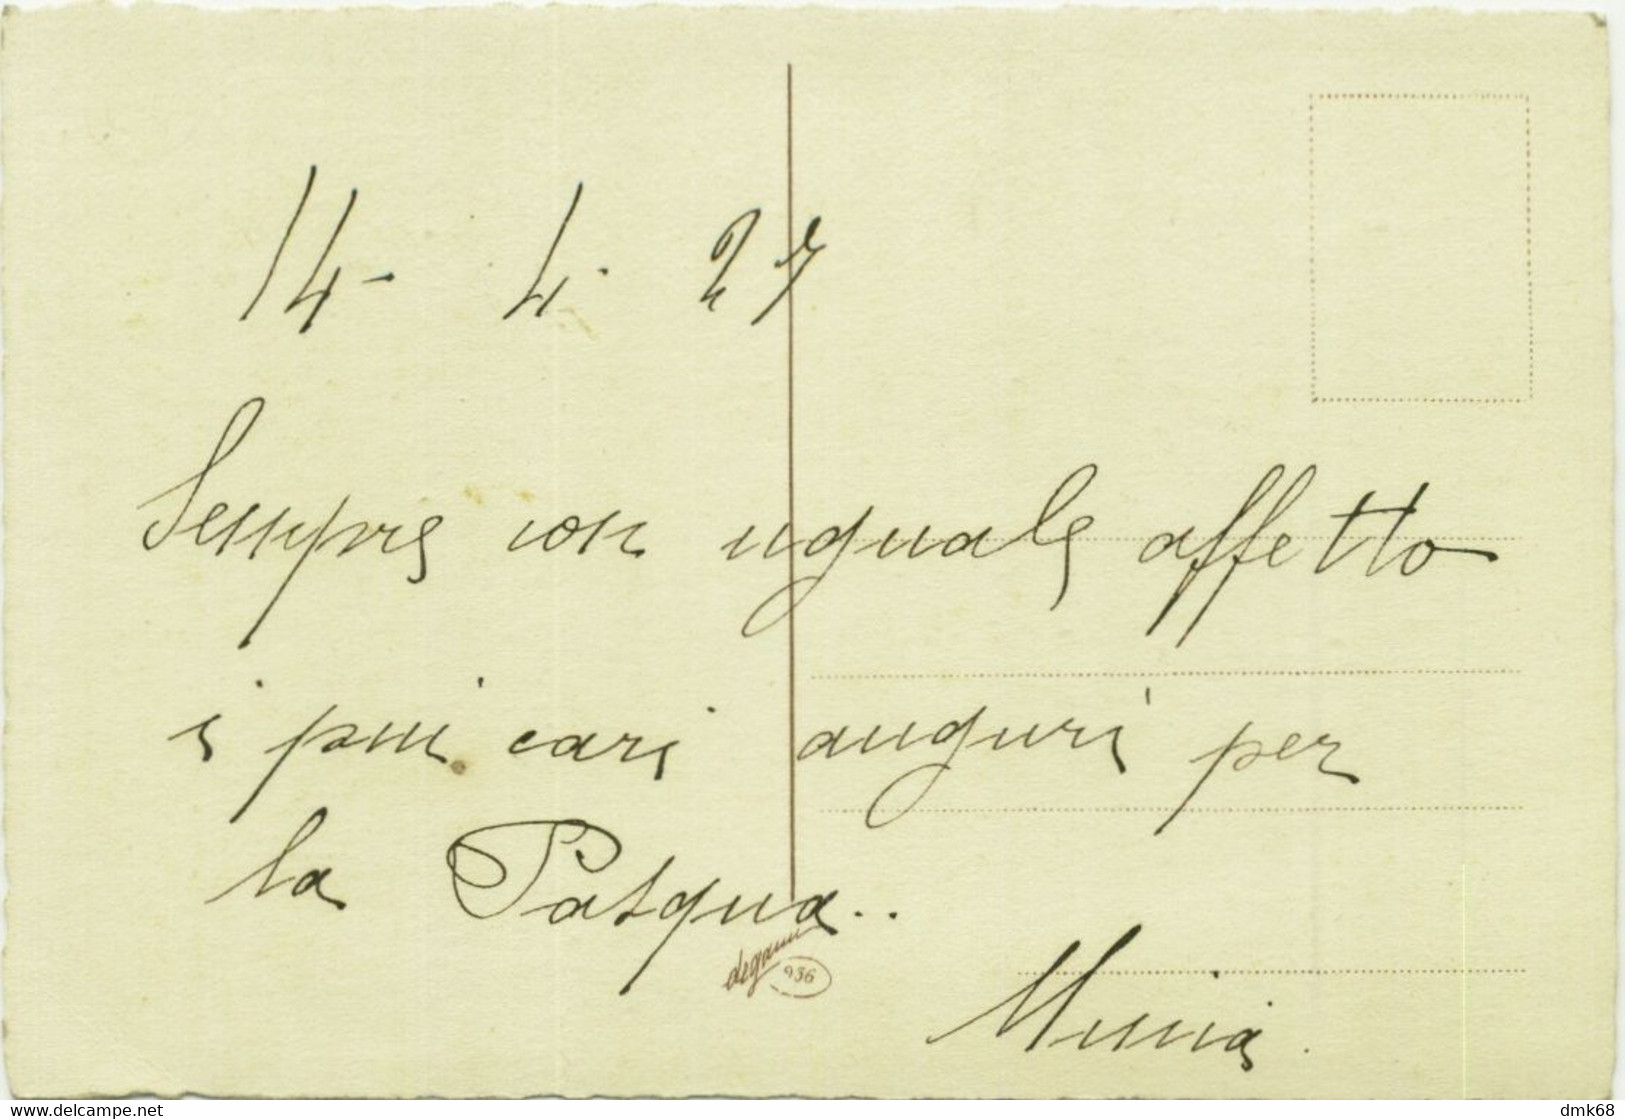 14- 4. 27
Sempre con uguale affetto
i piui cari auguri per
la Pasqua..
degami 936
delcampe.net
dmk68